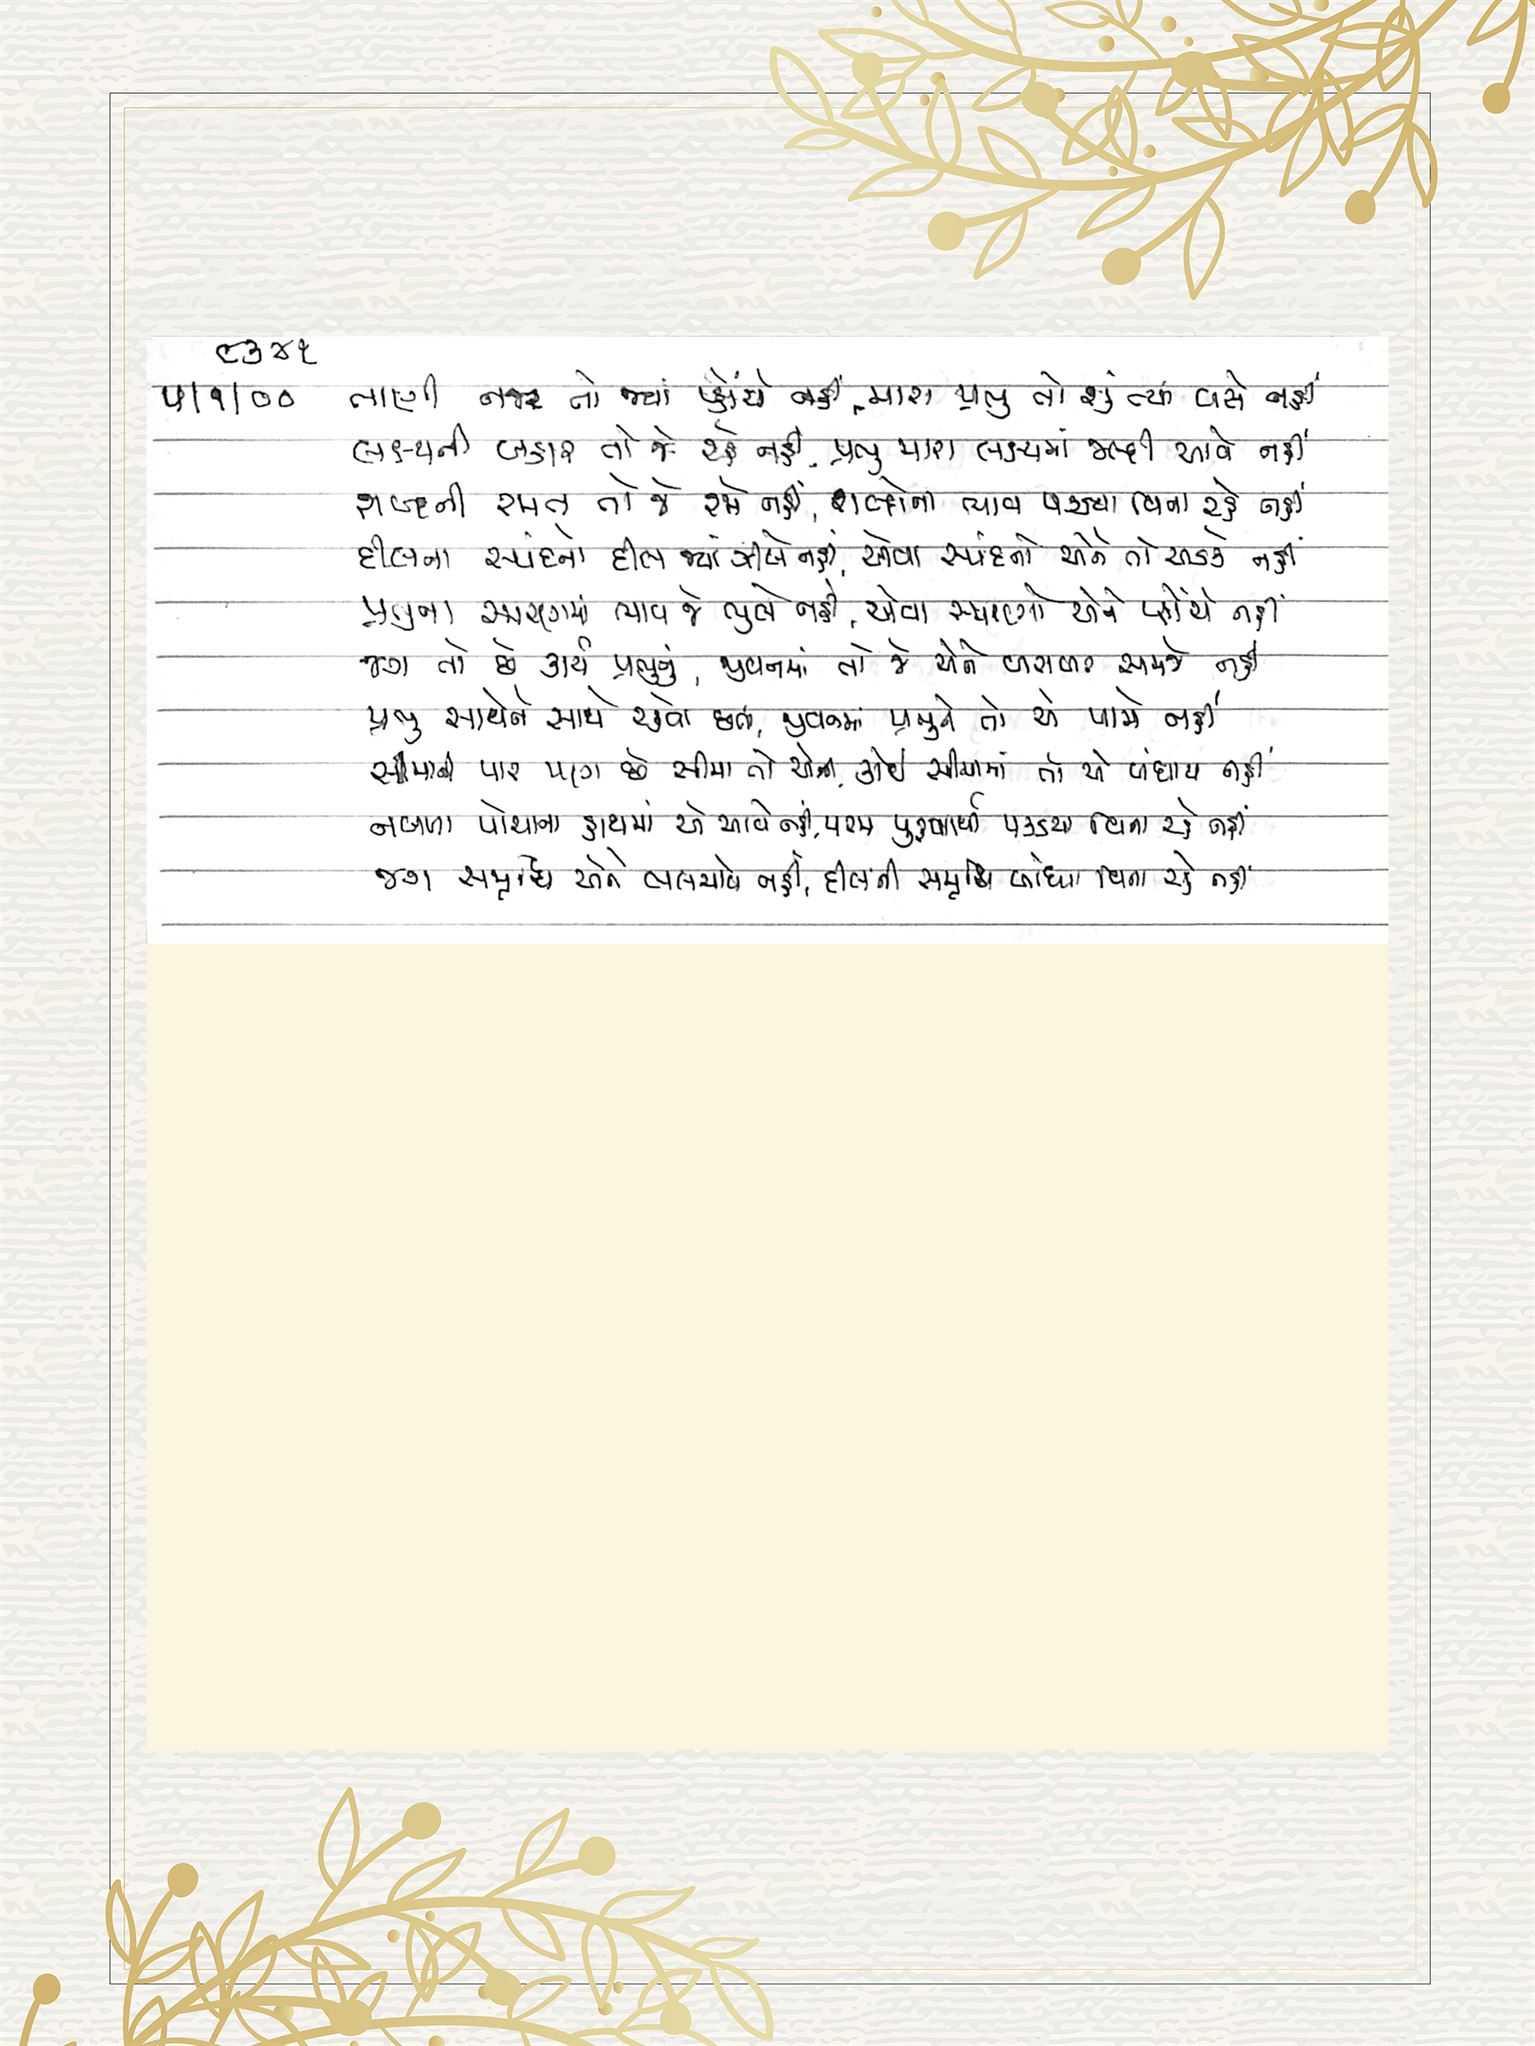 ૯૩૪૧
૫/૧/૦૦ તાણી નજર તો જ્યાં પ્હોંચે નહીં, મારા પ્રભુ તો શું ત્યાં વસે નહીં
લક્ષ્યની બહાર તો જે રહે નહીં, પ્રભુ મારા લક્ષ્યમાં જલ્દી આવે નહીં
શબ્દની રમત તો જે રમે નહીં, શબ્દોના ભાવ પકડયા વિના રહે નહીં
દીલના સ્પંદનો દીલ જ્યાં ઝીલે નહીં, એવા સ્પંદનો એને તો અડકે નહીં
પ્રભુના સ્મરણમાં ભાવ જે ભુલે નહીં, એવા સ્મરણો એને પ્હોંચે નહીં
જગ તો છે કાર્ય પ્રભુનું, જીવનમાં તો જે એને બરાબર સમજે નહીં
પ્રભુ સાથેને સાથે રહેવા છતાં, જીવનમાં પ્રભુને તો એ પામે નહીં
સીમાની પાર પણ છે સીમા તો એની, કોઈ સીમામાં તો એ બંધાય નહીં
નબળા પોચાના હાથમાં એ આવે નહીં, પરમ પુરૂષાર્થી પકડયા વિના રહે નહીં
જગ સમૃદ્ધિ એને લલચાવે નહીં, દીલની સમૃદ્ધિ બાંધ્યા વિના રહે નહીં